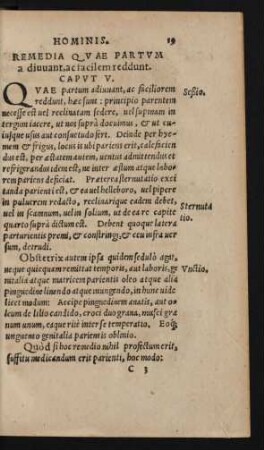 HOMINIS. 19
REMEDIA QVAE PARTVM
adiuuant, ac facilem reddunt.
CAPVT V.
QVAE partum adiuuant, ac faciliorem
reddunt, hæc sunt: principio parentem
necesse est uel reclinatam sedere, uel supinam in
tergum iacere, ut nos suprà docuimus, & ut cu
iusque usus aut consuetudo fert. Deinde per hye-
mem & frigus, locus is ubi parens erit, calefacien
dus est. per æstatem autem, uentus admittendus et
refrigerandus idem est, ne inter æstum atque labo-
rem pariens deficiat. Præterea sternutatio exci
tanda parienti est, & ea uel helleboro, uel pipere
in puluerem redacto, reclinarique eadem debet,
uel in scamnum, uel in solium, ut de ea re capite
quarto suprà dictum est. Debent quoque latera
parturientis premi, & constringi, & ceu infra uer
sum, detrudi.
Obstetrix autem ipsa quidem sedulò agat,
neque quicquam remittat temporis, aut laboris, ge
nitalia atque matricem parientis oleo atque alia
pinguedine liniendo atque inungendo, in hunc uide
licet modum: Accipe pinguedinem anatis, aut o-
leum de lilio candido, croci duo grana, musci gra
num unum, eaque rite inter se temperatio. Eoq́;
unguento genitalia parientis oblinio.
Quòd si hoc remedio nihil profectum erit,
suffitu medicandum erit parienti, hoc modo:
C 3
Sessio.
Sternuta
tio.
Vnctio,